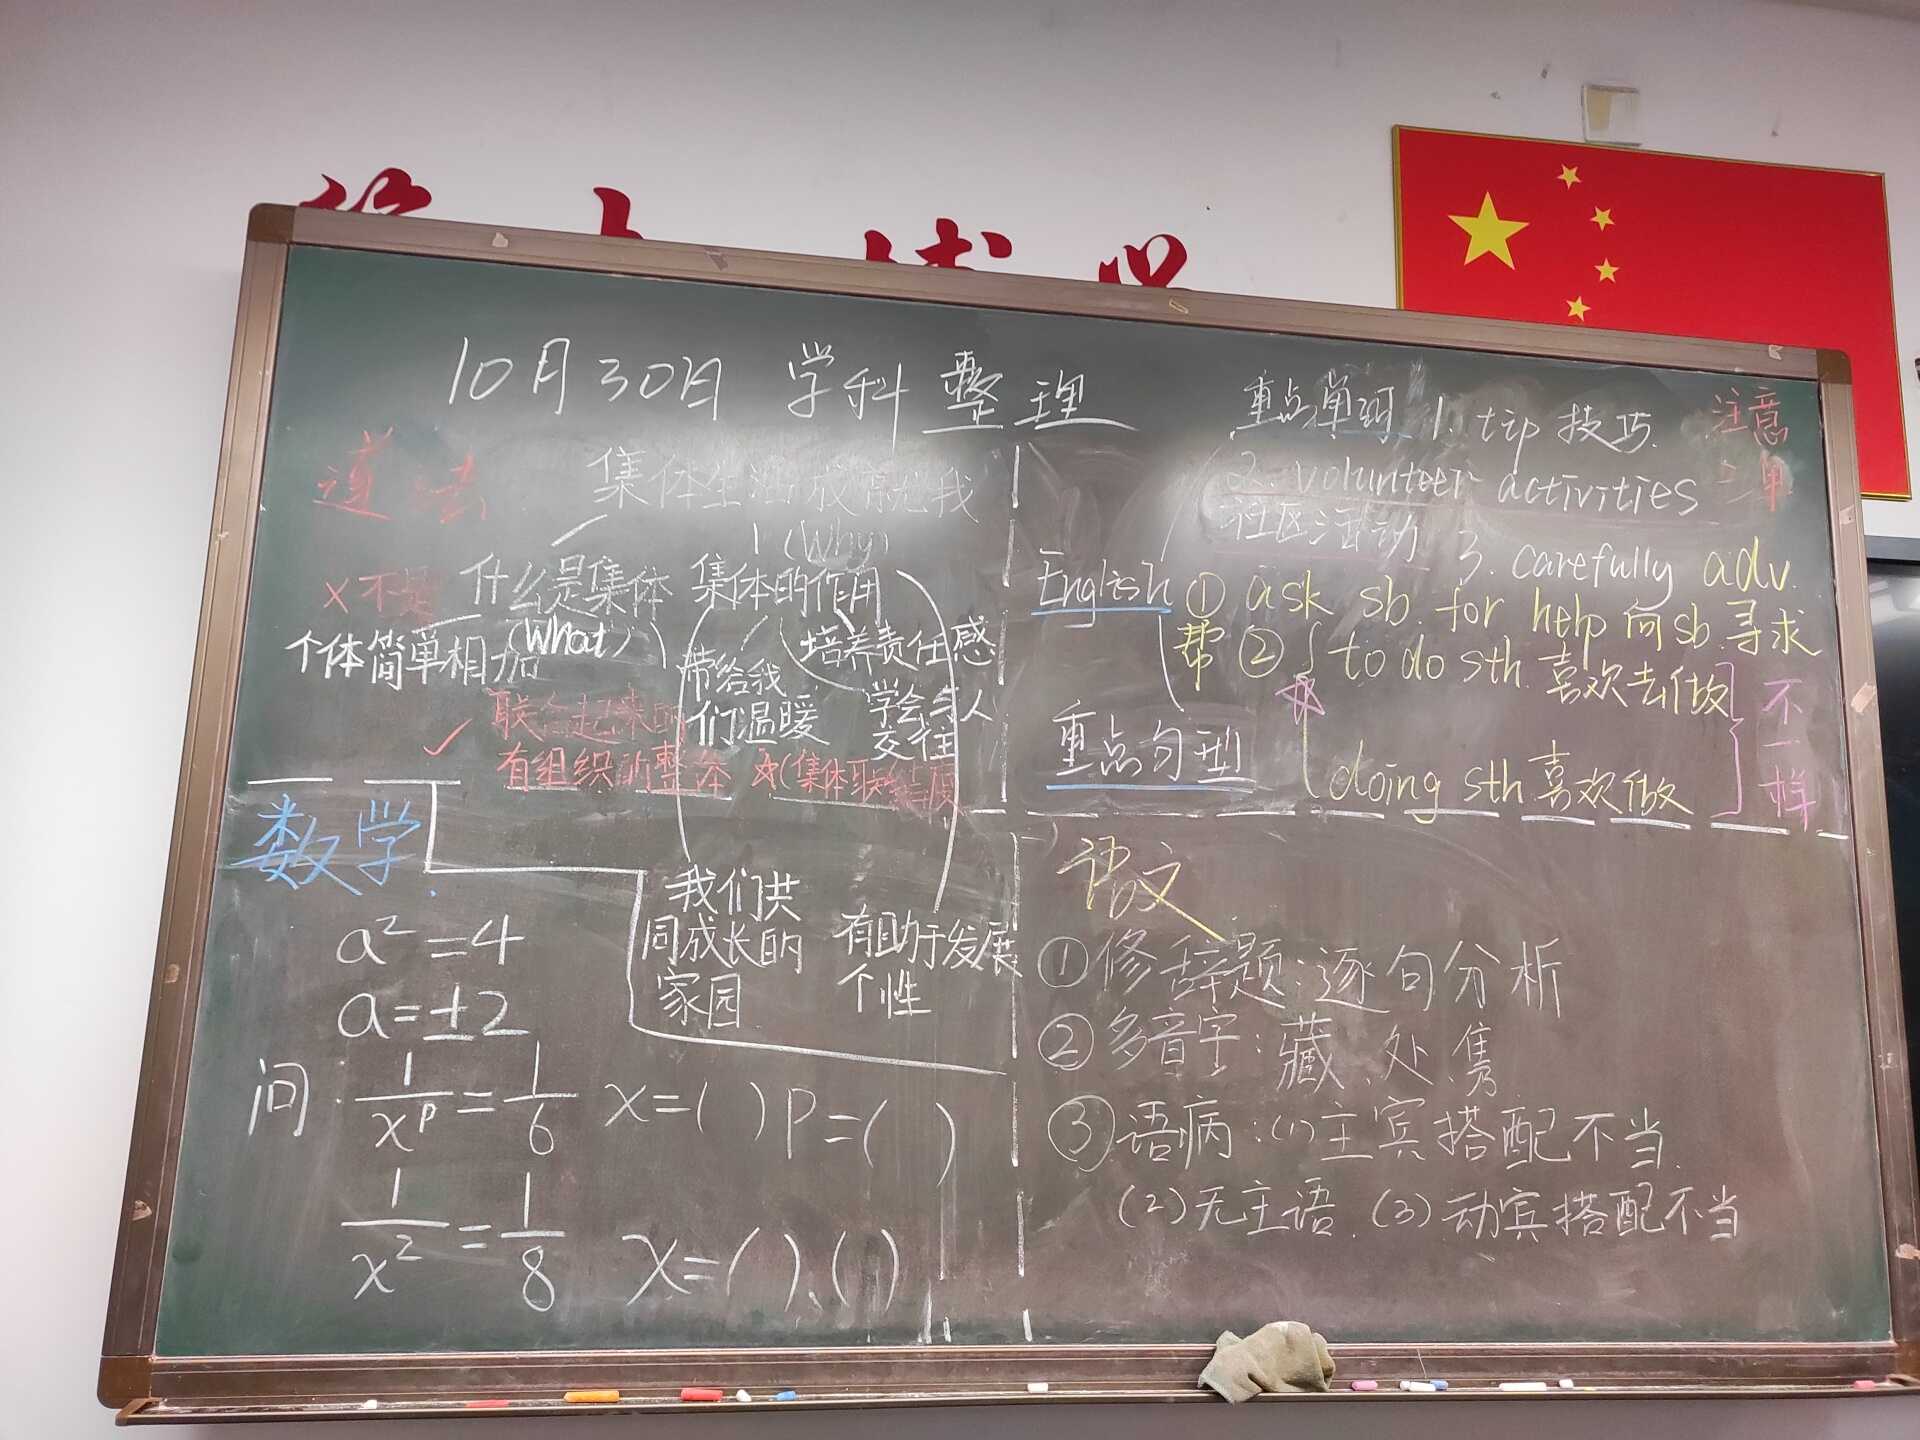 10月30日 学科整理
道法
集体生活成就我
什么是集体
(What)
× 不是
个体简单相加
✓ 联合起来的
有组织的整体
(Why)
集体的作用
带给我
们温暖
培养责任感
学会与人
交往
☆(集体联结度
我们共
同成长的
家园
有助于发展
个性
English
重点单词 1. tip 技巧.
2. volunteer activities
社区活动 3. carefully adv.
注意
① ask sb. for help 向sb.寻求
帮 ② to do sth. 喜欢去做
doing sth 喜欢做
不
一
样
重点句型
数学
a²=4
a=±2
问: 1/xᵖ=1/6 x=( ) P=( )
1/x²=1/8 x=( )、( )
语文
①修辞题:逐句分析
②多音字:藏、处、隽
③语病:(1)主宾搭配不当.
(2)无主语.(3)动宾搭配不当